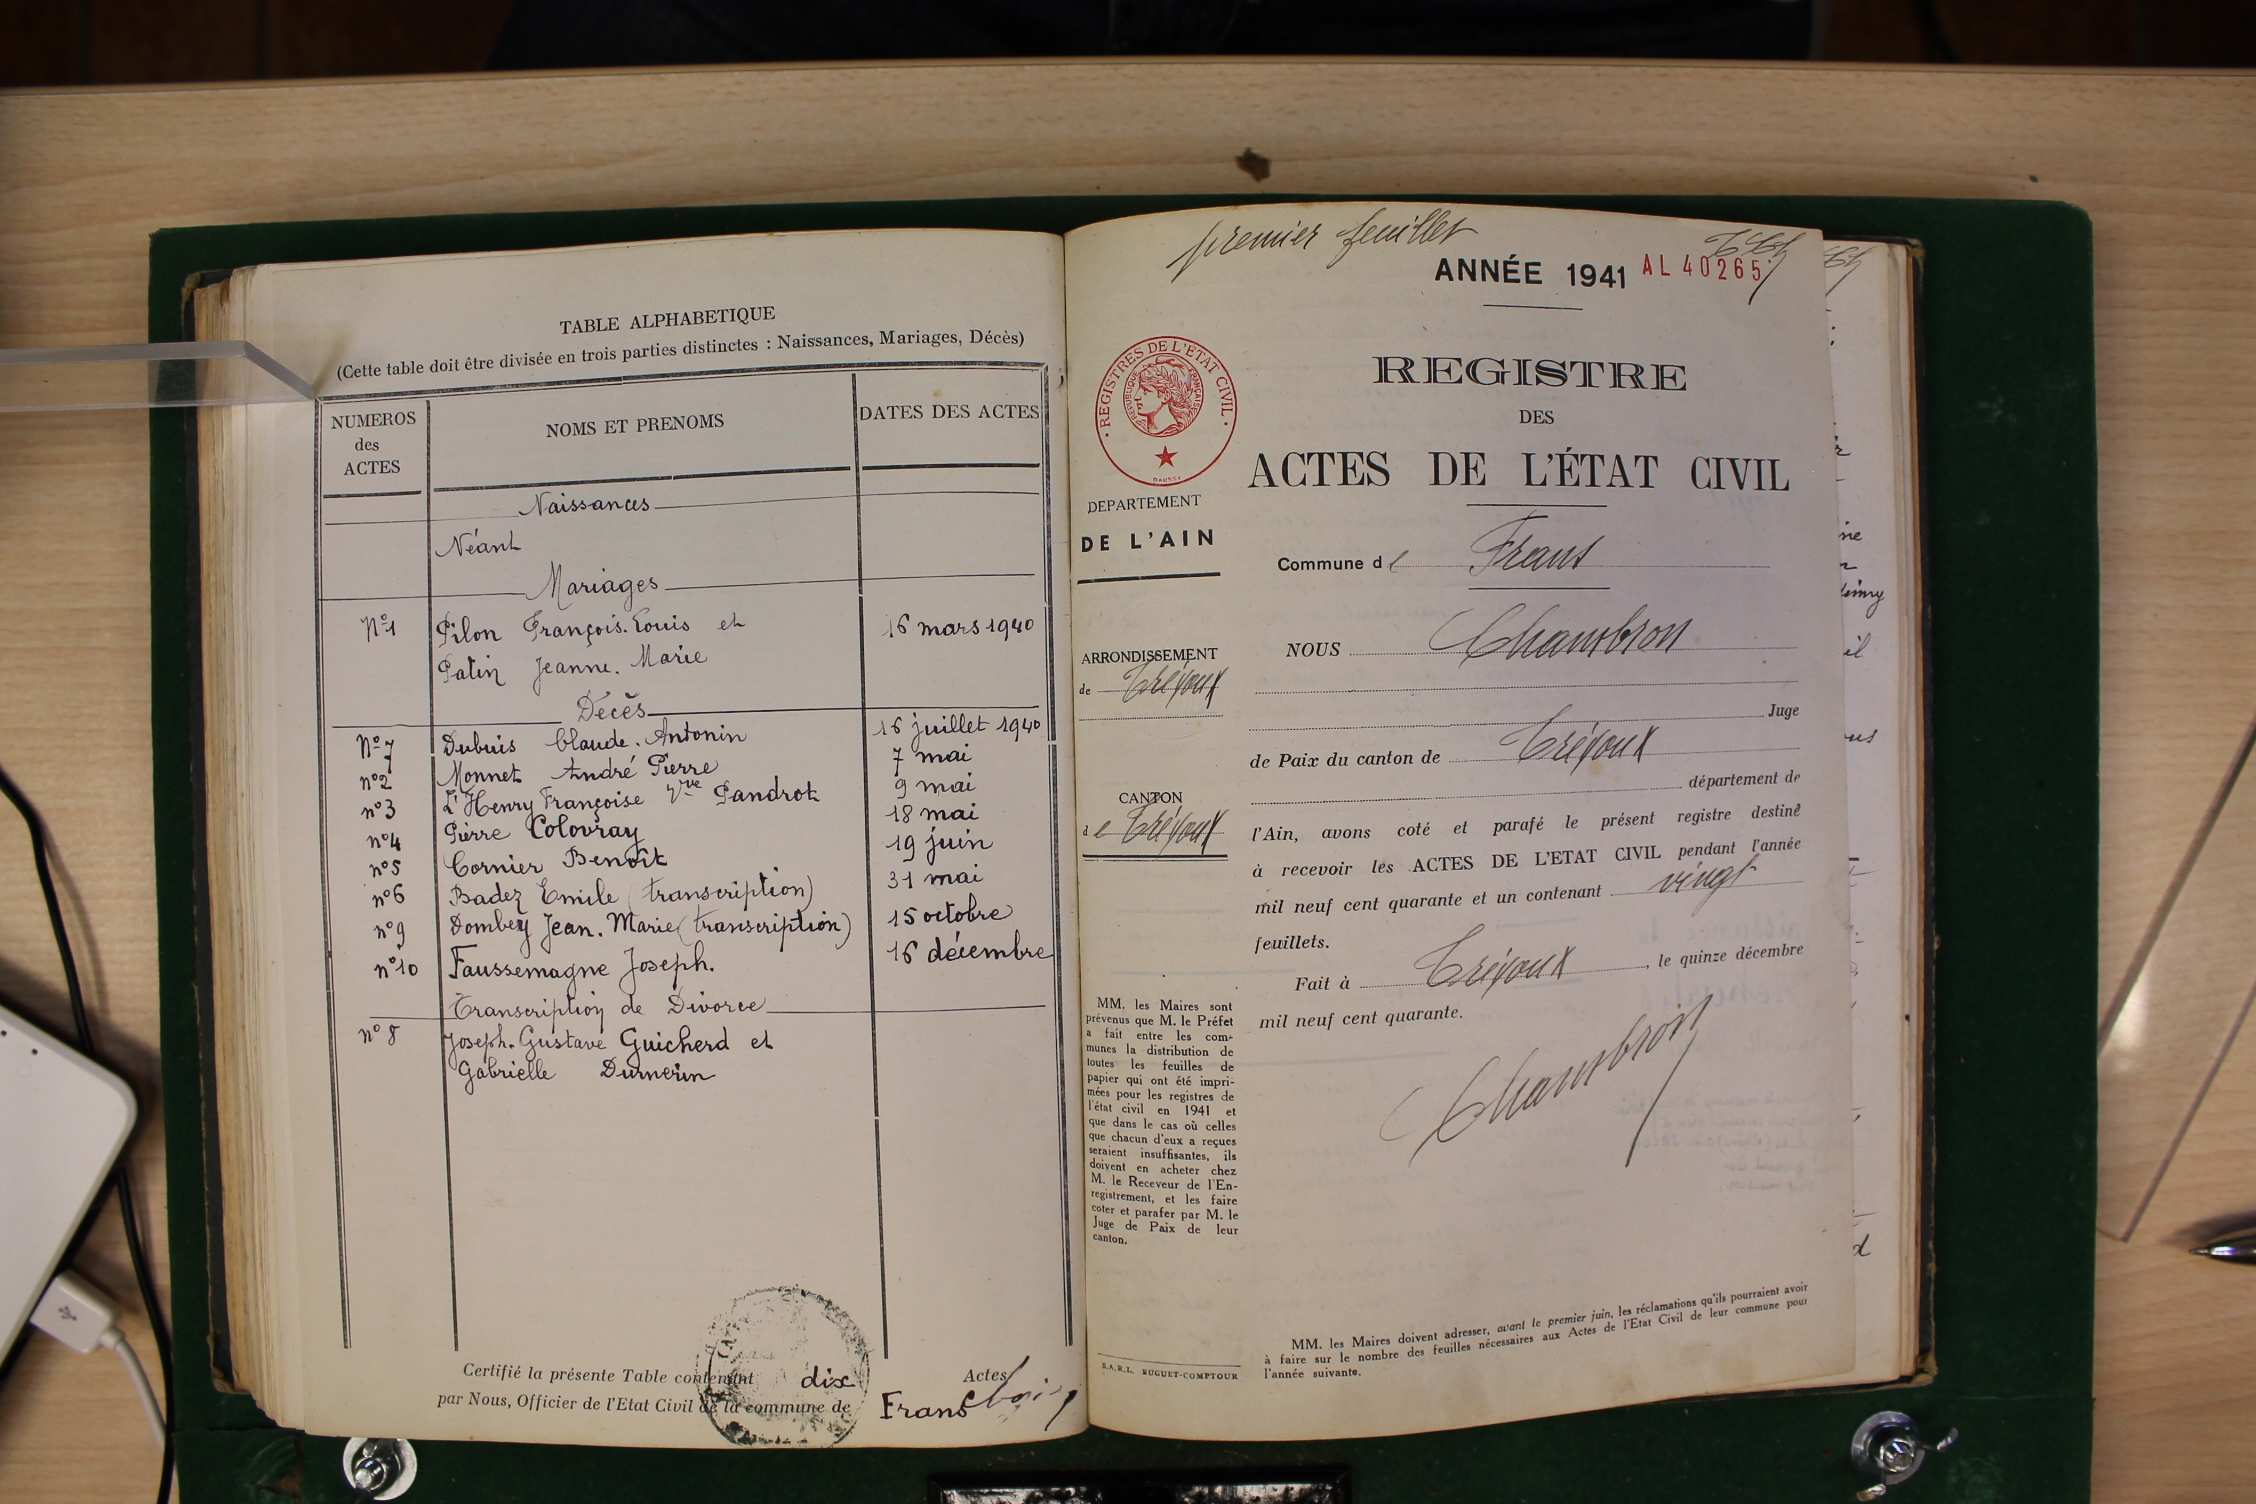 TABLE ALPHABETIQUE
(Cette table doit être divisée en trois parties distinctes : Naissances, Mariages, Décès)
NUMEROS des ACTES
NOMS ET PRENOMS
DATES DES ACTES
Naissances
Néant
Mariages
N°1 Pilon François. Louis et 16 mars 1940
Patin Jeanne. Marie
Décès
N° 7 Dubuis Claude. Antonin 16 juillet 1940
n°2 Monnet André Pierre 7 mai
n°3 L'Henry Françoise Vve Gandrot 9 mai
n°4 Pierre Colovray 18 mai
n°5 Cornier Benoît 19 juin
n°6 Badez Emile (transcription) 31 mai
n°9 Dombey Jean. Marie (transcription) 15 octobre
n°10 Faussemagne Joseph. 16 décembre
Transcription de Divorce
n° 8 Joseph. Gustave Guicherd et
Gabrielle Durnerin
Certifié la présente Table contenant dix Actes
par Nous, Officier de l'Etat Civil de la commune de Frans
premier feuillet
ANNÉE 1941 AL 40265
REGISTRES DE L'ETAT CIVIL
REPUBLIQUE FRANÇAISE
REGISTRE
DES
ACTES DE L'ÉTAT CIVIL
DEPARTEMENT
DE L'AIN
Commune de Frans
ARRONDISSEMENT
de Trévoux
CANTON
de Trévoux
NOUS Chambron
Juge
de Paix du canton de Trévoux
département de
l'Ain, avons coté et parafé le présent registre destiné
à recevoir les ACTES DE L'ETAT CIVIL pendant l'année
mil neuf cent quarante et un contenant vingt
feuillets.
Fait à Trévoux, le quinze décembre
mil neuf cent quarante.
Chambron
MM. les Maires sont
prévenus que M. le Préfet
a fait entre les com-
munes la distribution de
toutes les feuilles de
papier qui ont été impri-
mées pour les registres de
l'état civil en 1941 et
que dans le cas où celles
que chacun d'eux a reçues
seraient insuffisantes, ils
doivent en acheter chez
M. le Receveur de l'En-
registrement, et les faire
coter et parafer par M. le
Juge de Paix de leur
canton.
S.A.R.L. BUGUET-COMPTOUR
MM. les Maires doivent adresser, avant le premier juin, les réclamations qu'ils pourraient avoir
à faire sur le nombre des feuilles nécessaires aux Actes de l'Etat Civil de leur commune pour
l'année suivante.